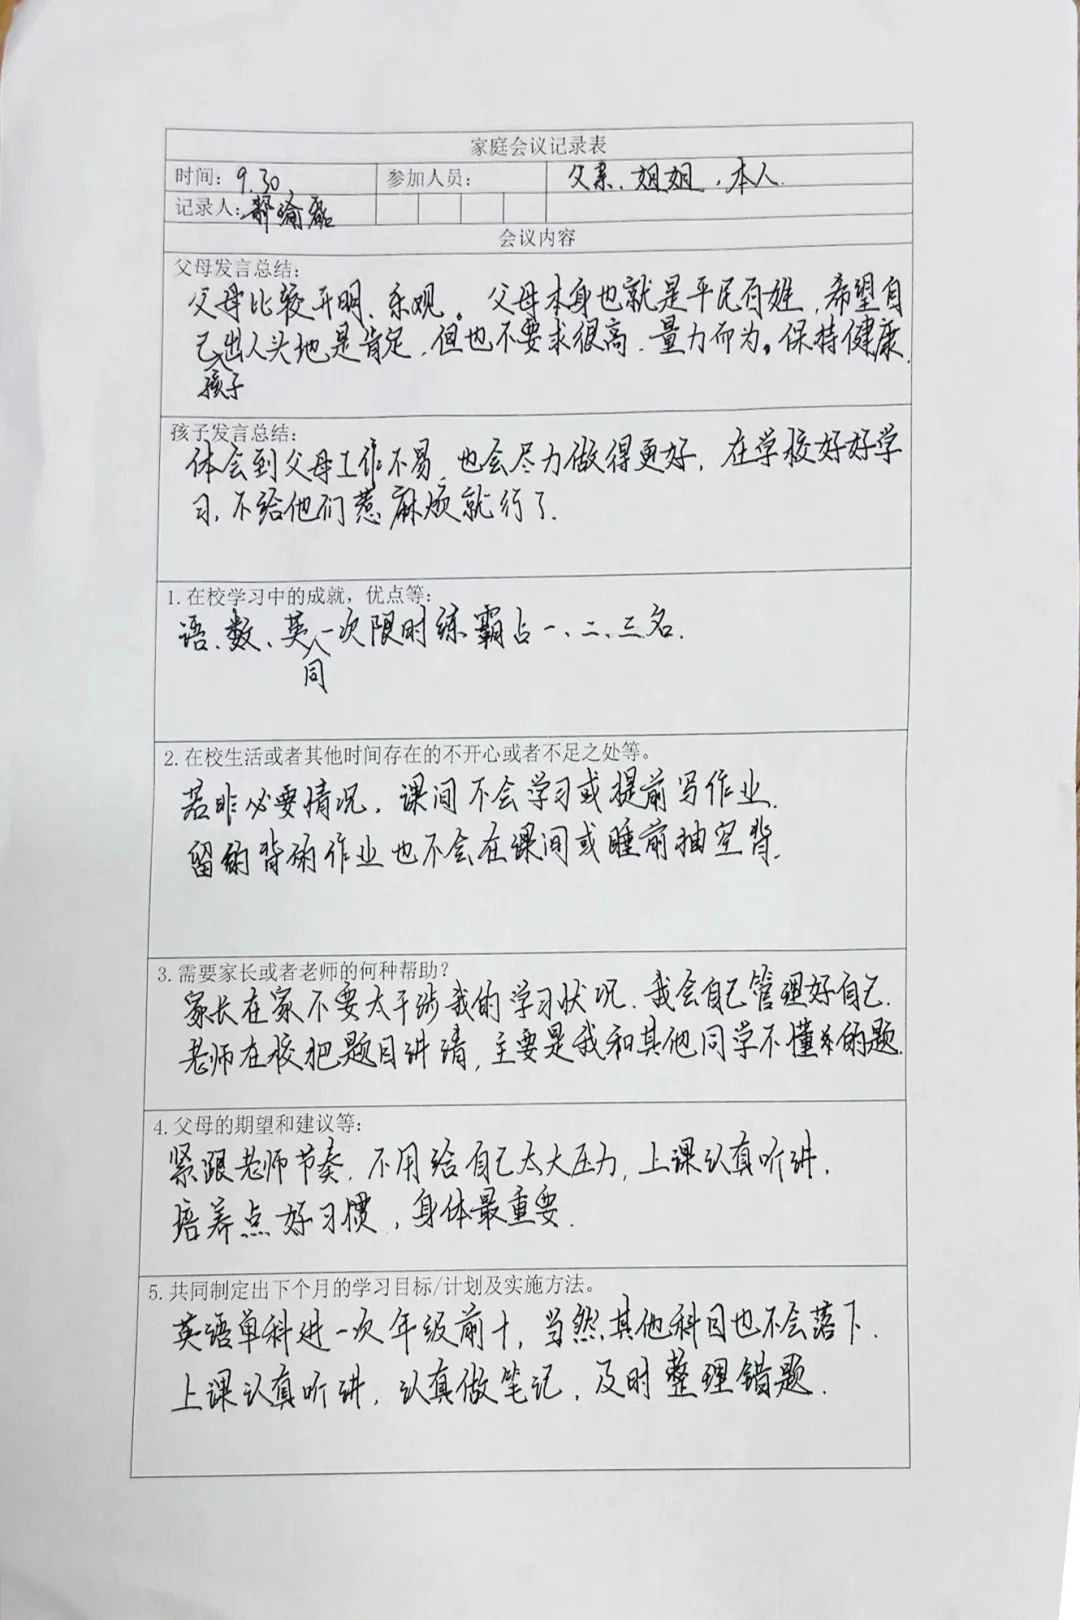 家庭会议记录表
时间：9.30 参加人员： 父亲、姐姐、本人.
记录人：瑜磊
会议内容
父母发言总结：
父母比较开明、乐观。父母本身也就是平民百姓，希望自
己孩子出人头地是肯定，但也不要求很高.量力而为。保持健康.
孩子发言总结：
体会到父母工作不易，也会尽力做得更好，在学校好好学
习，不给他们惹麻烦就行了.
1. 在校学习中的成就，优点等：
语、数、英同一次限时练霸占一、二、三名.
2. 在校生活或者其他时间存在的不开心或者不足之处等。
若非必要情况，课间不会学习或提前写作业.
留的背的作业也不会在课间或睡前抽空背.
3. 需要家长或者老师的何种帮助？
家长在家不要太干涉我的学习状况.我会自己管理好自己.
老师在校把题目讲清，主要是我和其他同学不懂的题.
4. 父母的期望和建议等：
紧跟老师节奏，不用给自己太大压力，上课认真听讲.
培养点好习惯，身体最重要.
5. 共同制定出下个月的学习目标/计划及实施方法。
英语单科进一次年级前十，当然其他科目也不会落下.
上课认真听讲，认真做笔记，及时整理错题.